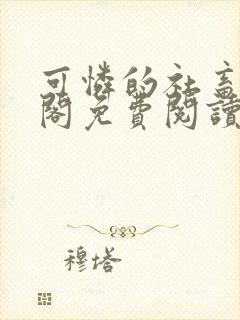 可憐的社畜
閣免費閱讀
穆塔